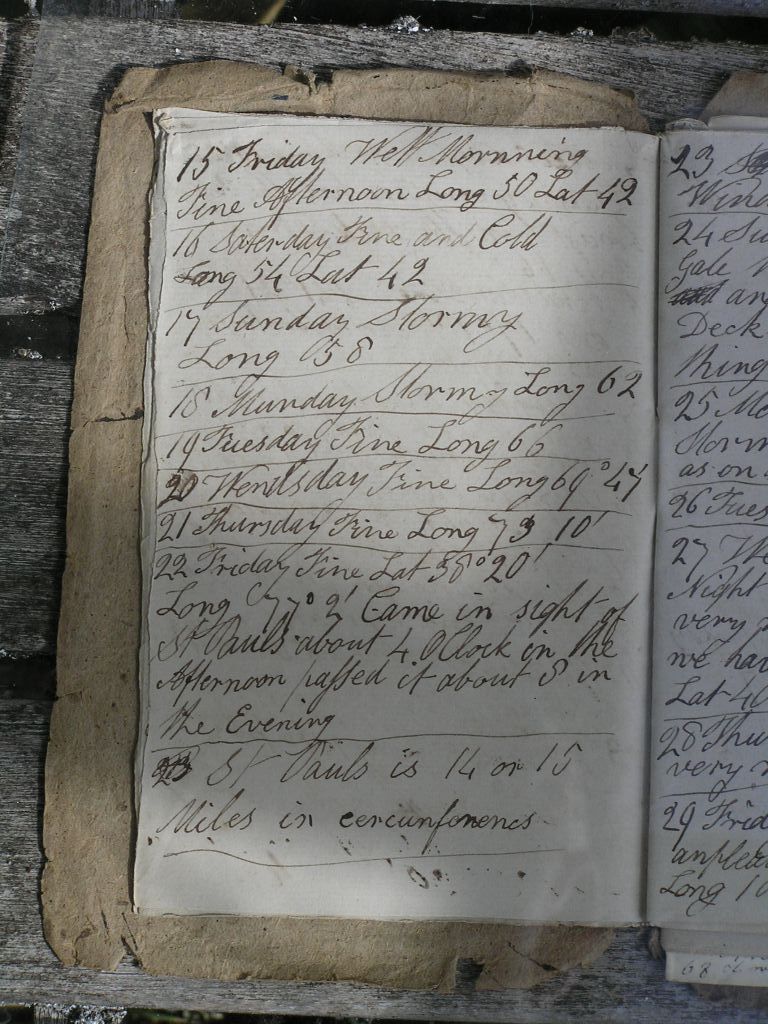 15 Friday Wett Mornning
Fine Afternoon Long 50 Lat 42
16 Saterday Fine and Cold
Long 54 Lat 42
17 Sunday Stormy
Long 58
18 Munday Stormy Long 62
19 Tuesday Fine Long 66
20 Wendsday Fine Long 69° 47'
21 Thursday Fine Long 73 10'
22 Friday Fine Lat 38° 20'
Long 77° 2' Came in sight of
St Pauls about 4 OClock in the
Afternoon passed it about 8 in
the Evening
St Pauls is 14 or 15
Miles in cercunferencs
23
Wind
24 Su
Gale
an
Deck
thing
25 Mo
Storm
as on
26 Tues
27 We
Night
very
we hav
Lat 40
28 Thu
very
29 Frid
anpleas
Long 10